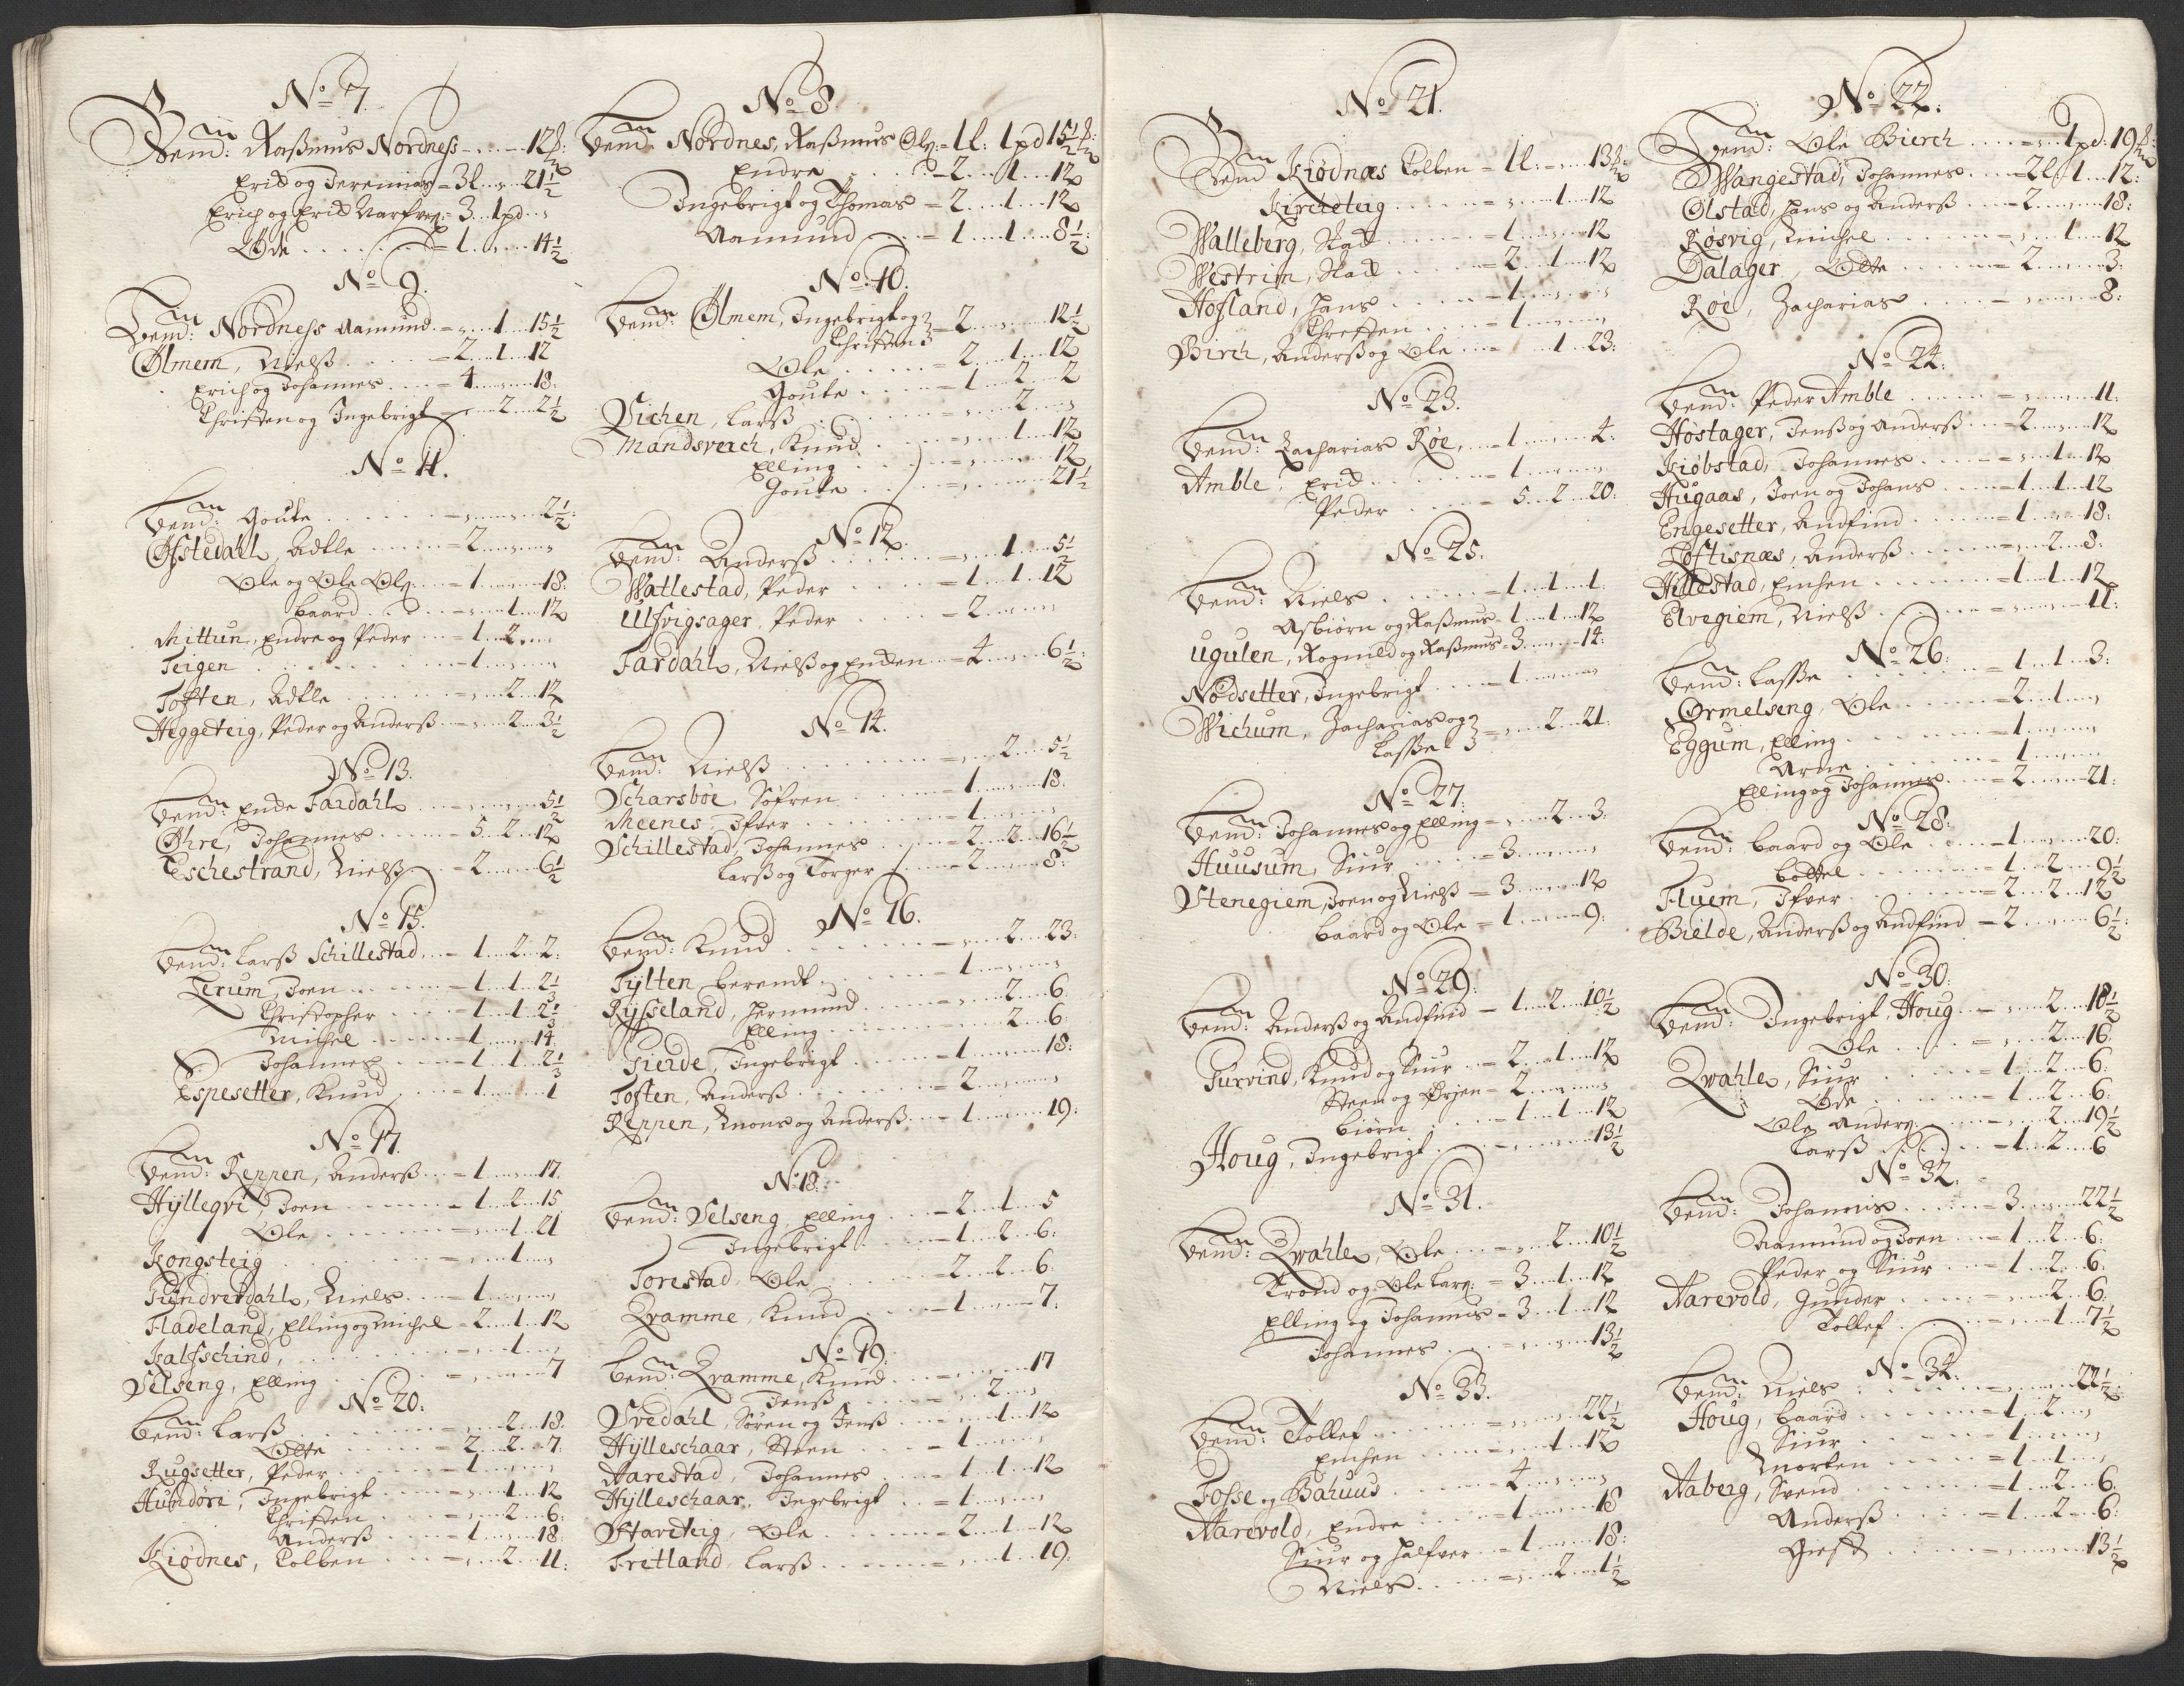 No 7.
Bem̃d: Raßmus Nordness - - 12 ƒ:
Erick og Jeremias = 3 l - „ - 21½
Erich og Erick Narfves: = 3 . 1 pd - „
Øde - - = 1 - „ - 14½
No 9.
Bem̃d: Nordness Aamund - = „ - 1 - 15½
Ølmem, Nielß - - = 2 - 1 - 12
Erich og Johannes - - = 4 - „ - 18:
Christen og Ingebrigt = „ - 2 - 2½
No 11.
Bem̃d: Goute - - = „ - „ - 2½:
Ofstedahl, Adtle - - = 2 - „ - „
Ole og Ole Ols: - = 1 - „ - 18:
Baard - - = „ - 1 - 12
Mittun, Endre og Peder - = 1 - 2 - „
Teigen - - = 1 - „ - „
Toften, Adtle - - = „ - 2 - 12
Heggeteig, Peder og Anderß - = „ - 2 - 3½
No 13.
Bem̃d: Ende Fardahl - = „ - „ - 5½
Øhre, Johannes - - = 5 - 2 - 12
Eschestrand, Nielß - = 2 - „ - 6½
No 15.
Bem̃d: Larß Schillestad - = 1 - 2 - 2:
Lerum, Joen - - = 1 - 1 - 2⅓
Christopher - = 1 - 1 - 2⅓
Michel - - = 1 - „ - 14
Johannes - = 1 - 1 - 2⅓
Espesetter, Knud - = 1 - „ - 1
No 17.
Bem̃d: Reppen, Anderß - = 1 - „ - 17.
Hylleqvi, Joen - - = 1 - 2 - 15
Ole - - = „ - 1 - 21
Kongsteig - - = „ - 1 - „
Tundredahl, Niels - = 1 - „ - „
Fladeland, Elling og Michel = 2 - 1 - 12
Kalfschind, - - = „ - 1 - „
Selseng, Elling - - = „ - „ - 7
No 20:
Bem̃d: Larß - - = „ - 2 - 18.
Otte - - = 2 - 2 - 7:
Rugsetter, Peder - = 1 - „ - „
Hundøri, Ingebrigt - = „ - 1 - 12
Christen - - = „ - 2 - 6:
Anderß - - = 1 - „ - 18:
Kiødnes, Colben - - = „ - 2 - 11:
No 8.
Bem̃d: Nordnes, Raßmus Ols: = 1 l: 1 pd 15½ ƒ:
Endre - - = 2 - 1 - 12
Ingebrigt og Thomas = 2 - 1 - 12
Aamund - - = 1 - 1 - 8½:
No 10.
Bem̃d: Ølmem, Ingebrigt og } = 2 - „ - 12½
Christen
Ole - - = 2 - 1 - 12
Goute - - = 1 - 2 - 2
Vichen, Larß - - = „ - 2 - „
Mandsverch, Knud - = „ - 1 - 12
Elling - - = „ - „ - 12
Goute - - = „ - „ - 21½
No 12.
Bem̃d: Anderß - - = „ - 1 - 5½
Watlestad, Peder - = 1 - 1 - 12
Ulfvigsager, Peder - = 2 - „ - „
Fardahl, Nielß og Enden - = 4 - „ - 6½:
No 14.
Bem̃d: Nielß - - = „ - 2 - 5½
Scharsbøe, Søfren - = 1 - „ - 18.
Meenes, Ifver - - = 1 - „ - „
Schillestad, Johannes - = 2 - 2 - 16½
Larß og Torger - = 2 - „ - 8:
No 16.
Bem̃d: Knud - - = „ - 2 - 23.
Tylten, Berendt - = 1 - „ - „
Rysseland, Hermund - = „ - 2 - 6
Elling - - = „ - 2 - 6.
Gierde, Ingebrigt - = 1 - „ - 18:
Toften, Anderß - - = 2 - „ - „
Reppen, Mons og Anderß - = 1 - „ - 19:
No 18.
Bem̃d: Selseng, Elling - = 2 - 1 - 5
Ingebrigt - = 1 - 2 - 6:
Torestad, Ole - = 2 - 2 - 6.
Qvamme, Knud - = 1 - „ - 7.
No 19:
Bem̃d: Qvamme, Knud - = „ - „ - 17
Jenß - - = „ - 2 - „
Svedahl, Søren og Jenß - = „ - 1 - 12
Hylleschaar, Steen - = 1 - „ - „
Aarestad, Johannes - = 1 - 1 - 12
Hylleschaar, Ingebrigt - = 1 - „ - „
Starteig, Ole - - = 2 - 1 - 12
Fretland, Larß - - = „ - 1 - 19:
No 21.
Bem̃d Kiødnæs Colben = 1 l: - „ - 13 ƒ:
Kircheteig - - = „ - 1 - 12
Walleberg, Stad - - = 1 - „ - 12
Westrim, Stad - - = 2 - 1 - 12
Hofland, Hans - - = 1 - „ - „
Chresten - - = 1 - „ - „
Birch, Anderß og Ole - = 1 - 23:
No 23.
Bem̃d: Zacharias Røe, - = 1 - „ - 4:
Amble, Erick - - = 1 - „ - „
Peder - - = 5 - 2 - 20:
No 25.
Bem̃d: Niels - - = 1 - 1 - 1.
Asbiørn og Raßmus = 1 - 1 - 12
Ugulen, Rognild og Raßmus = 3 - „ - 14:
Nodsetter, Ingebrigt - = 1 - „ - „
Wichum, Zacharias og } = „ - 2 - 21.
Lasse
No 27:
Bem̃d: Johannes og Elling = „ - 2 - 3:
Huusum, Siur - - = 3 - „ - „
Stenegiem, Joen og Nielß = 3 - „ - 12
Baard og Ole = 1 - „ - 9:
No 29:
Bem̃d: Anderß og Andfind = 1 - 2 - 10½
Turvind, Knud og Siur - = 2 - 1 - 12
Steen og Ørjen = 2 - „ - „
Biørn - - = 1 - 1 - 12
Houg, Ingebrigt - = „ - „ - 13½
No 31.
Bem̃d: Qvahle, Ole - = „ - 2 - 10½
Trond og Ole Lars: = 3 - 1 - 12
Elling og Johannes = 3 - 1 - 12
Johannes - - = „ - „ - 13½
No 33.
Bem̃d: Tollef - - = „ - „ - 22½
Emchen - - = „ - 1 - 12
Fosse og Bahuus - - 4 - „ - „
Aarevold, Endre - = 1 - „ - 18
Siur og Halfver = 1 - „ - 18:
Niels - - = „ - 2 - 1½
No 22:
Bem̃d: Ole Bierch - - = „ - 1 pd: 19 ƒ:
Wangestad, Johannes - = 2 l: 1 - 12:
Ølstad, Hans og Anderß - = 2 - „ - 18:
Røsvig, Michel - - = „ - 1 - 12
Dalager, Otte - - = 2 - „ - 3:
Røe, Zacharias - - = „ - „ - 8:
No 24:
Bem̃d: Peder Amble - - = „ - „ - 11.
Høstager, Jenß og Anderß - = 2 - „ - 12
Kiøbstad, Johannes - = „ - 1 - 12
Hugaas, Joen og Johans - = 1 - 1 - 12
Engesetter, Andfind - = 1 - „ - 18:
Loftisnæs, Anderß - = „ - 2 - 8:
Hillestad, Emchen - - = 1 - 1 - 12
Elvegiem, Nielß - - = „ - „ - 11:
No 26:
Bem̃d: Lasse - - = 1 - 1 - 3:
Ormelseng, Ole - - = 2 - 1 - „
Eggum, Elling - - = 1 - „ - „
Arne - - = 1 - „ - „
Elling og Johannes - = 2 - „ - 21:
No 28:
Bem̃d: Baard og Ole - = 1 - „ - 20:
Bottel - - = 1 - 2 - 9½
Fluem, Ifver - - = 2 - 2 - 12
Bielde, Anderß og Andfind = 2 - „ - 6½:
No 30:
Bem̃d: Ingebrigt Houg - = „ - 2 - 18½
Ole - - = „ - 2 - 16.
Qvahle, Siur - - = 1 - 2 - 6:
Øde - - = 1 - 2 - 6:
Ole Anders: - = „ - 2 - 19½
Larß - - = 1 - 2 - 6
No 32.
Bem̃d: Johannes - - = 3 - „ - 22½
Aamund og Joen - = 1 - 2 - 6:
Peder og Siur - = 1 - 2 - 6:
Aarevold, Gunder - = „ - 2 - 6.
Tollef - - = „ - 1 - 7½
No 34.
Bem̃d: Niels - - = „ - „ - 22½:
Houg, Baard - - = 1 - 2 - „
Siur - - = 1 - „ - „
Morten - - = 1 - 1 - „
Aaberg, Svend - - = 1 - 2 - 6.
Anderß - - = 1 - 2 - 6:
Giest - - = „ - „ - 13½